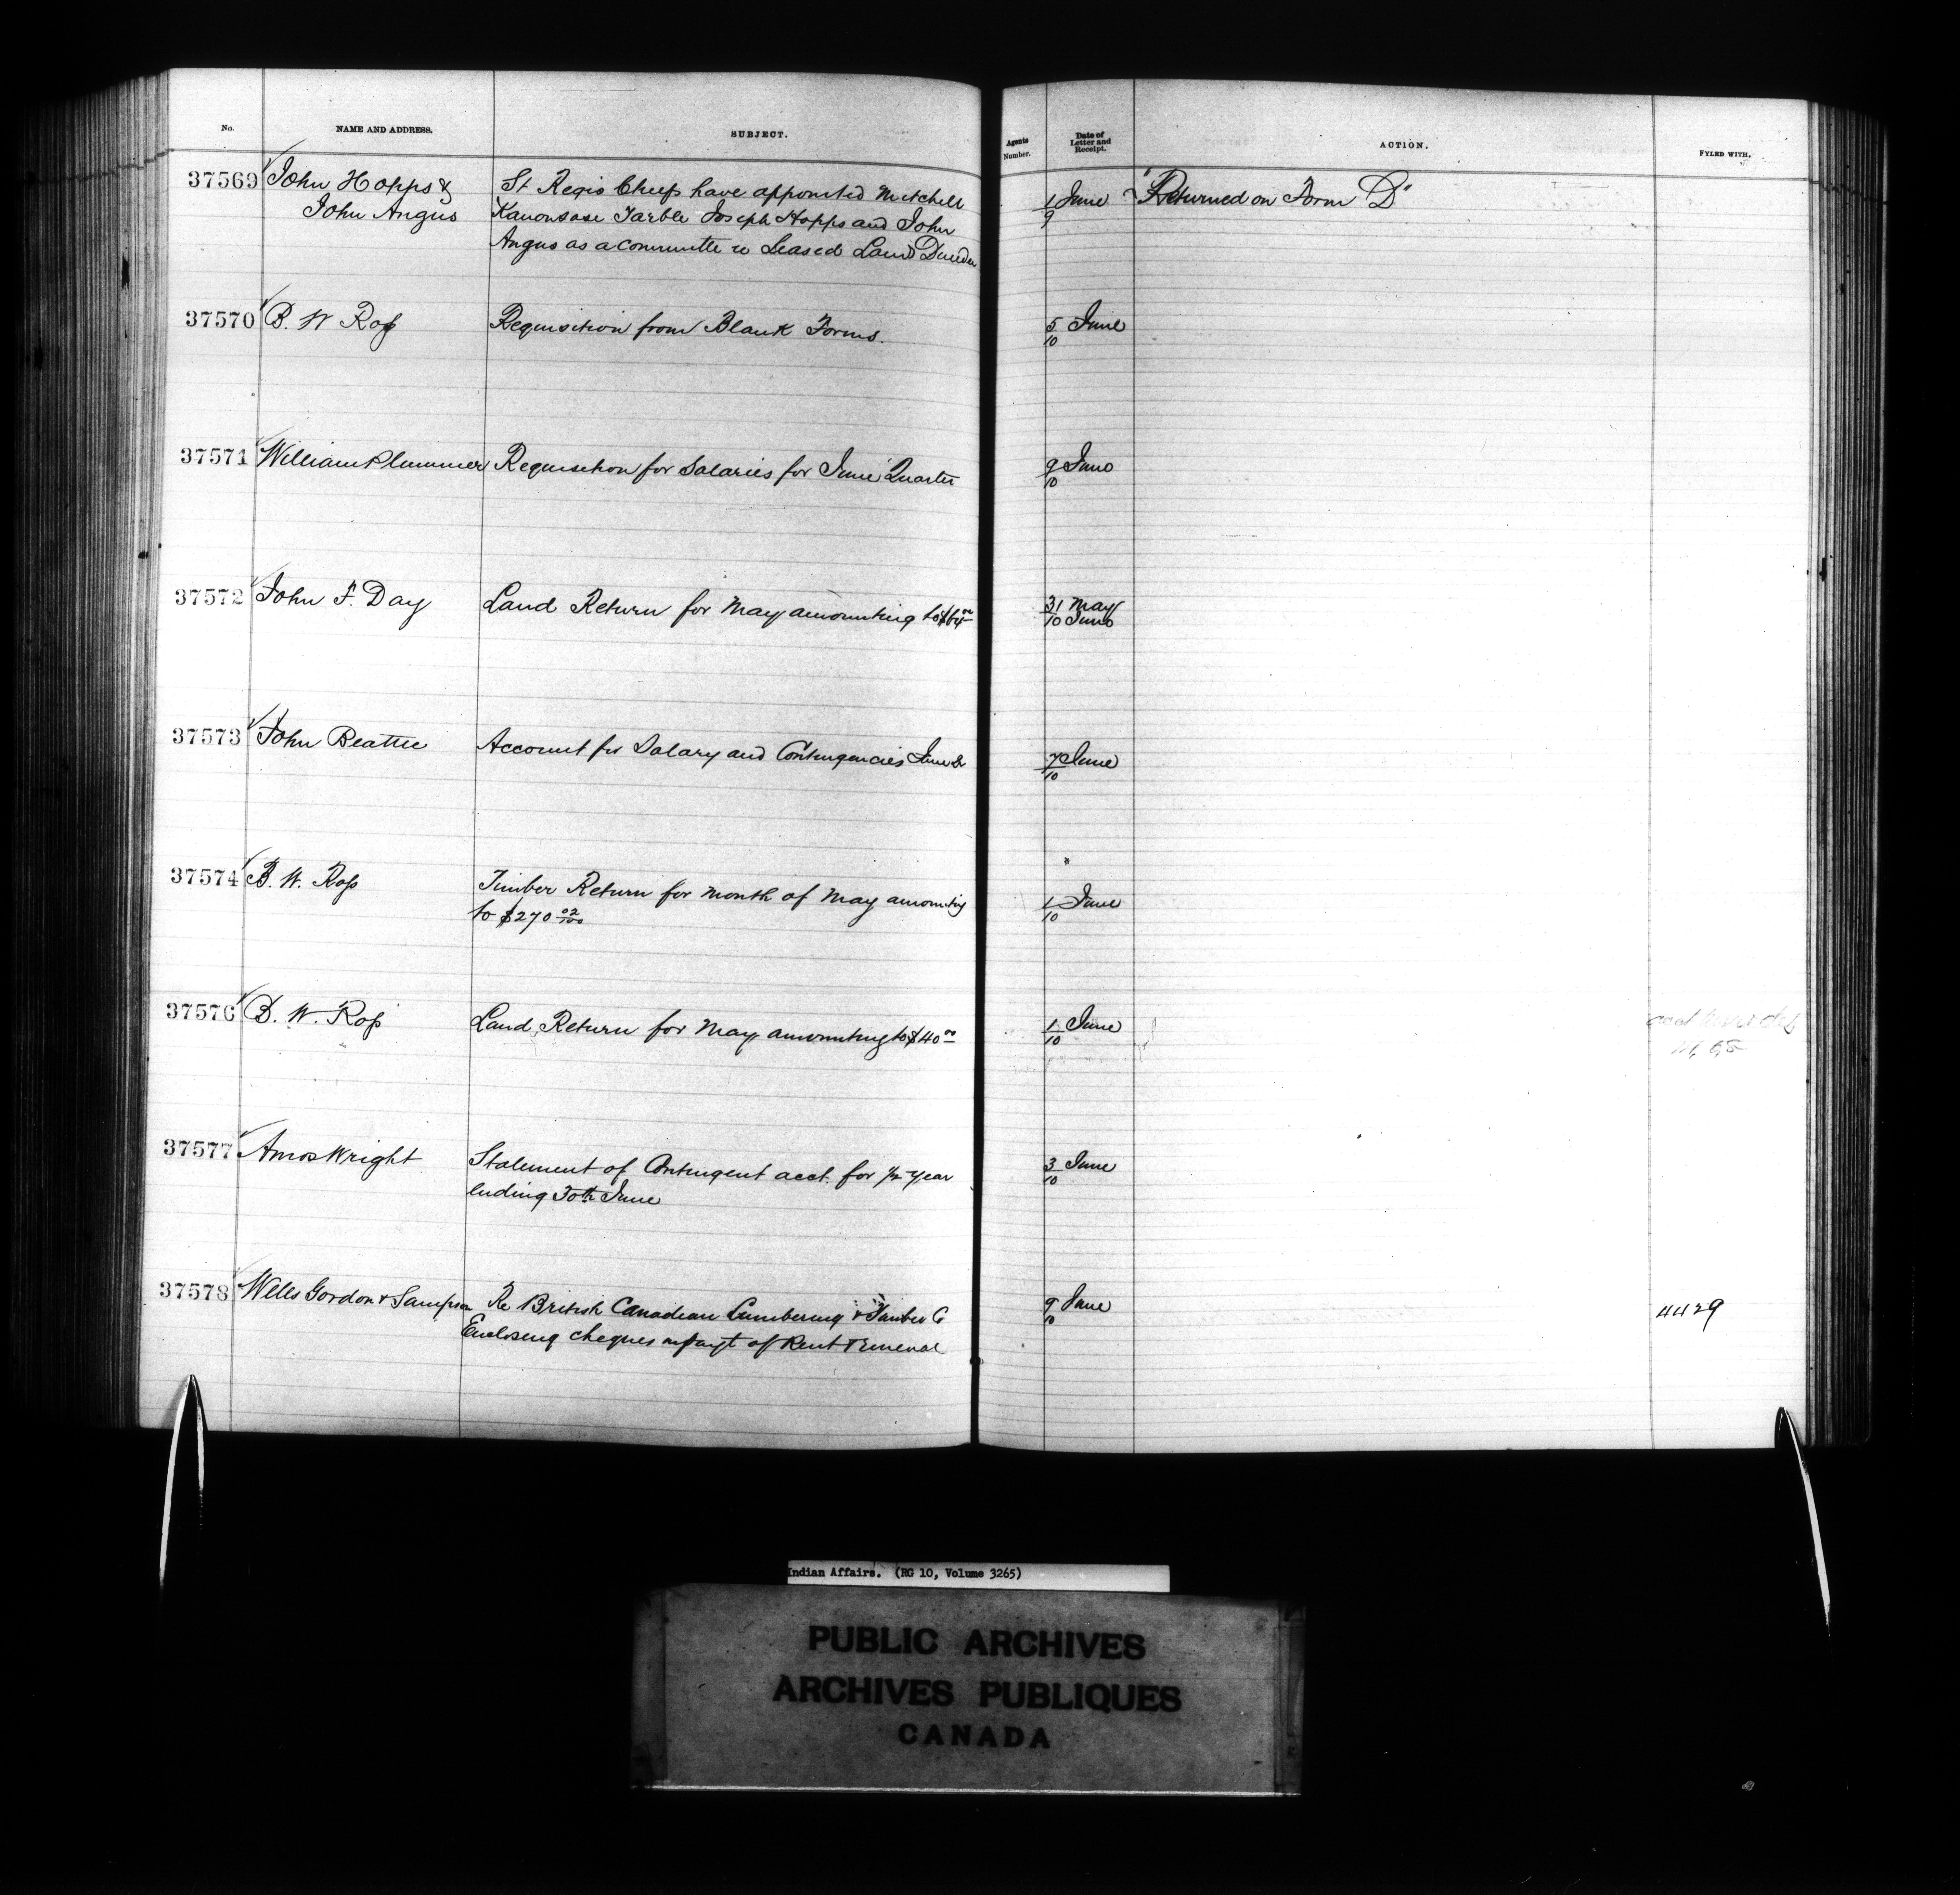 No. NAME AND ADDRESS. SUBJECT. Agents Number. Date of Letter and Receipt. ACTION. FYLED WITH.
37569 John Hopps & St Regis Chiefs have appointed Mitchell 1 June "Returned on Form D"
John Angus Kanonsase Tarble Joseph Hopps and John 9
Angus as a committe re Leased Land Dundee
37570 B. W Ross Requisition from Blank Forms. 5 June
10
37571 William Plummer Requisition for Salaries for June Quarter 9 June
10
37572 John F. Day Land Return for May amounting to $64 00 31 May
10 June
37573 John Beattie Account for Salary and Contingencies June 7 June
10
37574 B. W. Ross Timber Return for month of May amounting 1 June
to $270 02/100 10
37576 B. W. Ross Land Return for May amounting to $40 00 1 June
10
37577 Amos Wright Statement of Contingent acct. for 1/2 year 3 June
ending 30th June 10
37578 Wells Gordon & Sampson Re British Canadian Lumbering & Timber Co 9 June 4429
Enclosing cheques in payt of Rent & renewal 10
Indian Affairs. (RG 10, Volume 3265)
PUBLIC ARCHIVES
ARCHIVES PUBLIQUES
CANADA